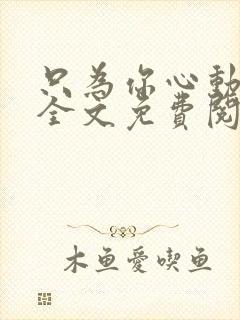 只為你心動
全文免費閱
木鱼愛喫鱼